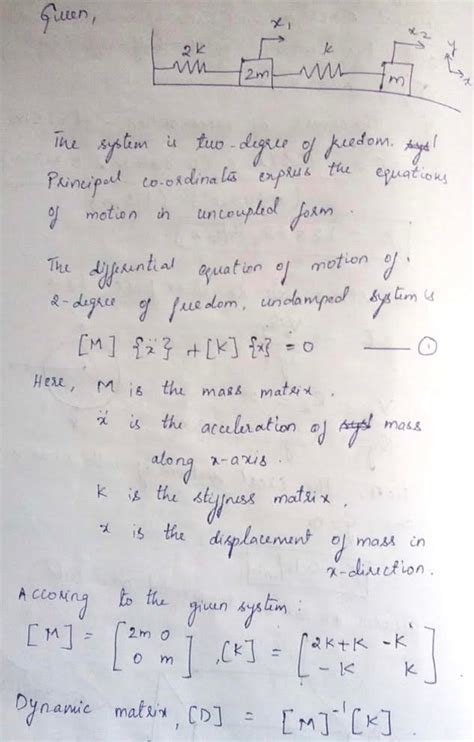 Given,
x₁ x₂
2k k y
2m m x
The system is two-degree of freedom.
Principal co-ordinates express the equations
of motion in uncoupled form.
The differential equation of motion of
2-degree of freedom, undamped system is
[M] {ẍ} + [K] {x} = 0 —— ①
Here, M is the mass matrix.
ẍ is the acceleration of mass
along x-axis.
K is the stiffness matrix.
x is the displacement of mass in
x-direction.
Accoring to the given system:
[M] = [2m 0 , [K] = [2K+K -K
0 m] -K K]
Dynamic matrix, [D] = [M]⁻¹ [K]